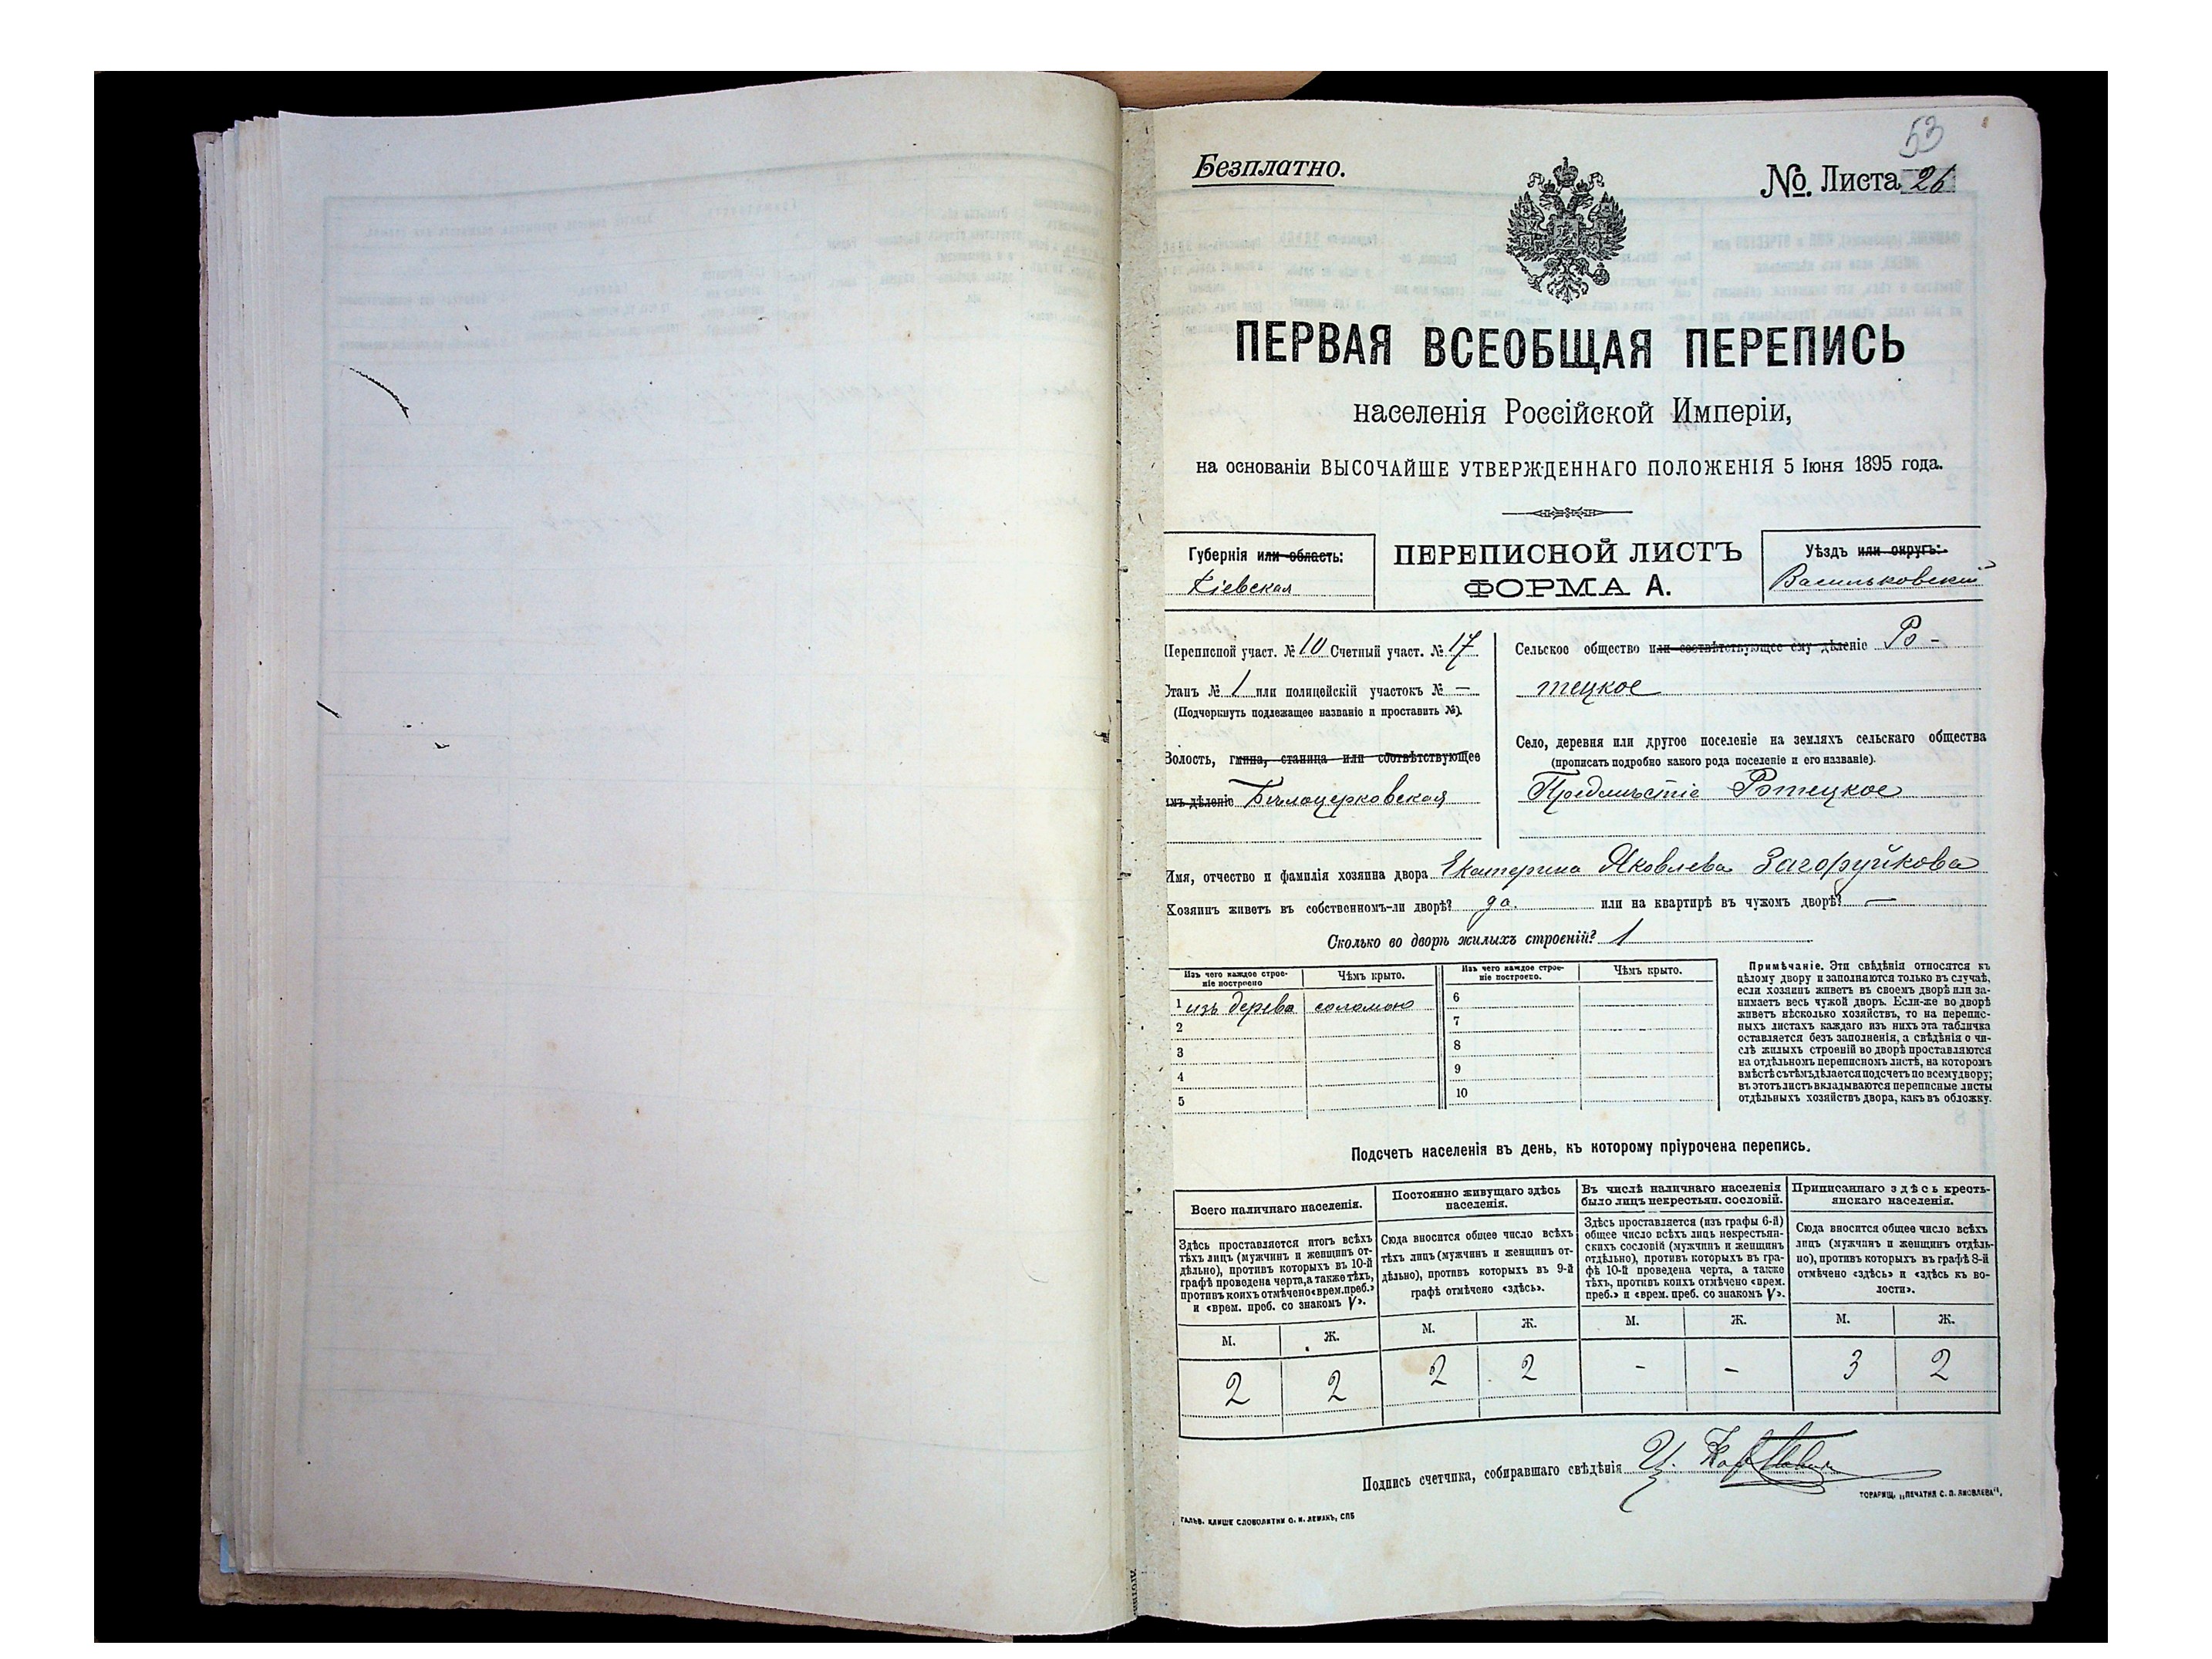 53
Безплатно.
№. Листа 26
ПЕРВАЯ ВСЕОБЩАЯ ПЕРЕПИСЬ
населенія Россійской Имперіи,
на основаніи ВЫСОЧАЙШЕ УТВЕРЖДЕННАГО ПОЛОЖЕНІЯ 5 Іюня 1895 года.
Губернія или область:
Кіевская
ПЕРЕПИСНОЙ ЛИСТЪ
ФОРМА А.
Уѣздъ или округъ:
Васильковскій
Переписной участ. № 10 Счетный участ. № 17
Станъ № 1 или полицейскій участокъ № —
(Подчеркнуть подлежащее названіе и проставить №).
Волость, гмина, станица или соотвѣтствующее
имъ дѣленіе Бѣлоцерковская
Сельское общество или соотвѣтствующее ему дѣленіе Ро-
тецкое
Село, деревня или другое поселеніе на земляхъ сельскаго общества
(прописать подробно какого рода поселеніе и его названіе).
Предмѣстіе Ротецкое
Имя, отчество и фамилія хозяина двора Екатерина Яковлева Загоруйкова
Хозяинъ живетъ въ собственномъ-ли дворѣ? да. или на квартирѣ въ чужомъ дворѣ? —
Сколько во дворѣ жилыхъ строеній? 1
Изъ чего каждое строе-
ніе построено
Чѣмъ крыто.
Изъ чего каждое строе-
ніе построено.
Чѣмъ крыто.
1 изъ дерева соломою
2
3
4
5
6
7
8
9
10
Примѣчаніе. Эти свѣдѣнія относятся къ
цѣлому двору и заполняются только въ случаѣ,
если хозяинъ живетъ въ своемъ дворѣ или за-
нимаетъ весь чужой дворъ. Если-же во дворѣ
живетъ нѣсколько хозяйствъ, то на перепис-
ныхъ листахъ каждаго изъ нихъ эта табличка
оставляется безъ заполненія, а свѣдѣнія о чи-
слѣ жилыхъ строеній во дворѣ проставляются
на отдѣльномъ переписномъ листѣ, на которомъ
вмѣстѣ съ тѣмъ дѣлается подсчетъ по всему двору;
въ этотъ листъ вкладываются переписные листы
отдѣльныхъ хозяйствъ двора, какъ въ обложку.
Подсчетъ населенія въ день, къ которому пріурочена перепись.
Всего наличнаго населенія.
Здѣсь проставляется итогъ всѣхъ
тѣхъ лицъ (мужчинъ и женщинъ от-
дѣльно), противъ которыхъ въ 10-й
графѣ проведена черта, а также тѣхъ,
противъ коихъ отмѣчено «врем. преб.»
и «врем. преб. со знакомъ V».
Постоянно живущаго здѣсь
населенія.
Сюда вносится общее число всѣхъ
тѣхъ лицъ (мужчинъ и женщинъ от-
дѣльно), противъ которыхъ въ 9-й
графѣ отмѣчено «здѣсь».
Въ числѣ наличнаго населенія
было лицъ некрестьян. сословій.
Здѣсь проставляется (изъ графы 6-й)
общее число всѣхъ лицъ некрестьян-
скихъ сословій (мужчинъ и женщинъ
отдѣльно), противъ которыхъ въ гра-
фѣ 10-й проведена черта, а также
тѣхъ, противъ коихъ отмѣчено «врем.
преб.» и «врем. преб. со знакомъ V».
Приписаннаго здѣсь кресть-
янскаго населенія.
Сюда вносится общее число всѣхъ
лицъ (мужчинъ и женщинъ отдѣль-
но), противъ которыхъ въ графѣ 8-й
отмѣчено «здѣсь» и «здѣсь къ во-
лости».
М. Ж. М. Ж. М. Ж. М. Ж.
2 2 2 2 - - 3 2
Подпись счетчика, собиравшаго свѣдѣнія
ТОВАРИЩ. „ПЕЧАТНЯ С. П. ЯКОВЛЕВА“.
ГАЛЬВ. КЛИШЕ СЛОВОЛИТНИ О. И. ЛЕМАНЪ, СПБ